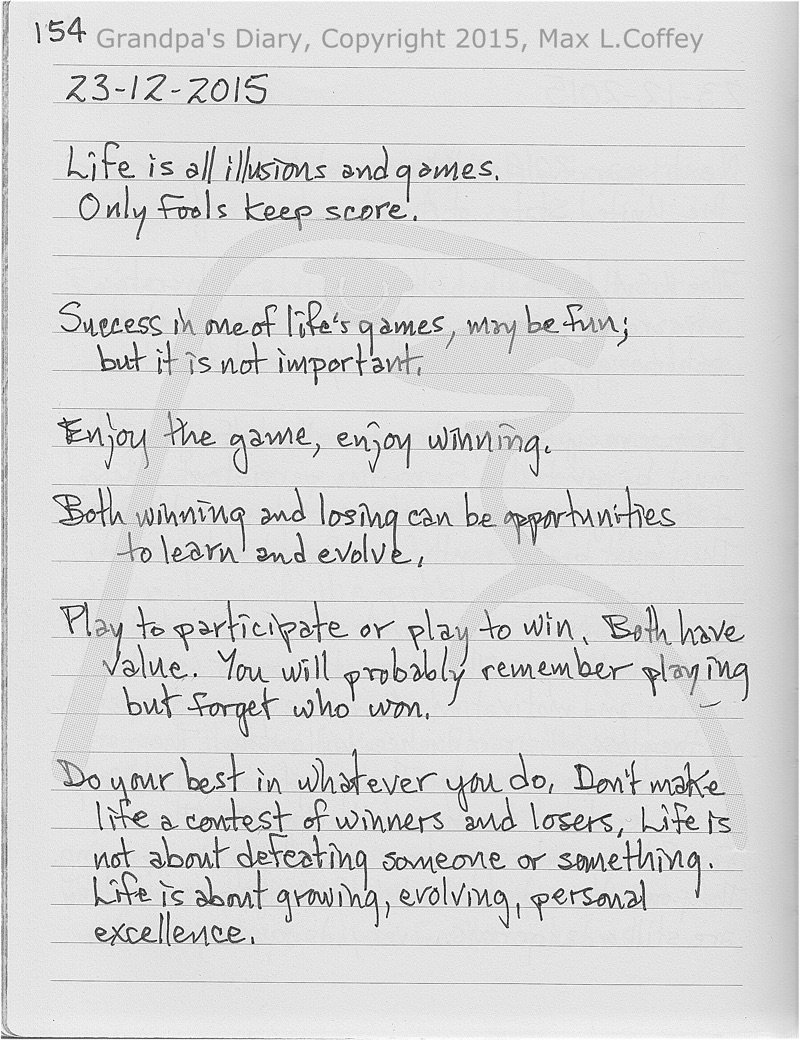 154 Grandpa's Diary, Copyright 2015, Max L.Coffey
23-12-2015
Life is all illusions and games.
Only fools keep score.
Success in one of life's games, may be fun;
but it is not important.
Enjoy the game, enjoy winning.
Both winning and losing can be opportunities
to learn and evolve.
Play to participate or play to win. Both have
value. You will probably remember playing
but forget who won.
Do your best in whatever you do. Don't make
life a contest of winners and losers, Life is
not about defeating someone or something.
Life is about growing, evolving, personal
excellence.